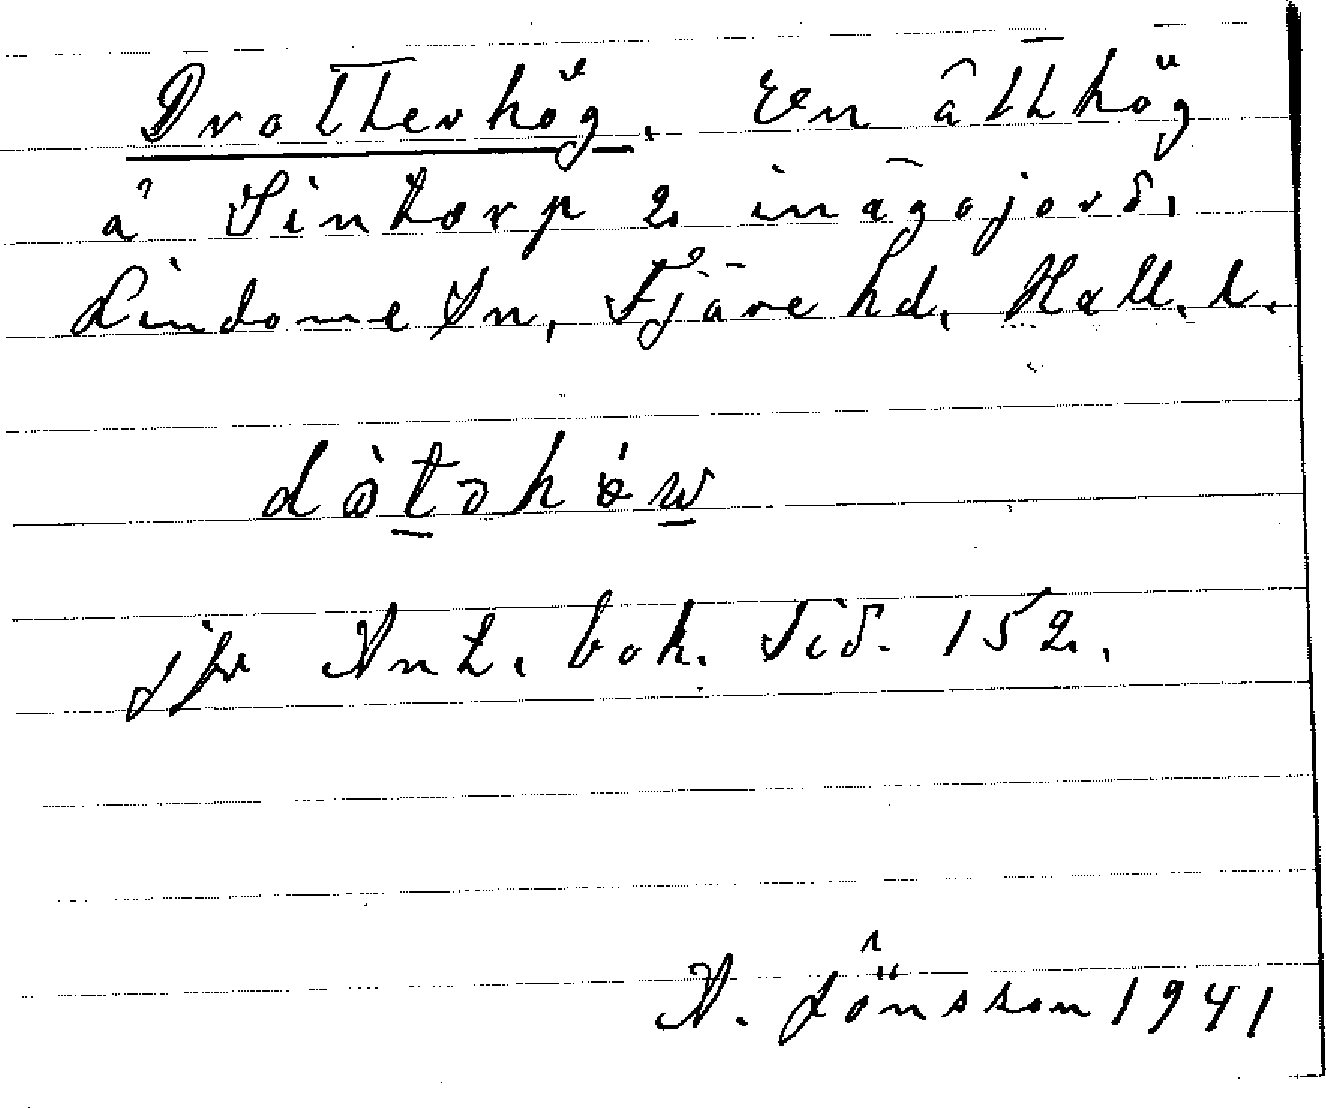 Drottherhög. En ätthög
å Sintorp 2. inägojord,
Lindome Sn, Fjäre hd, Hall. l.
jfr Ant. bok. Sid. 152.
A. Jönsson 1941